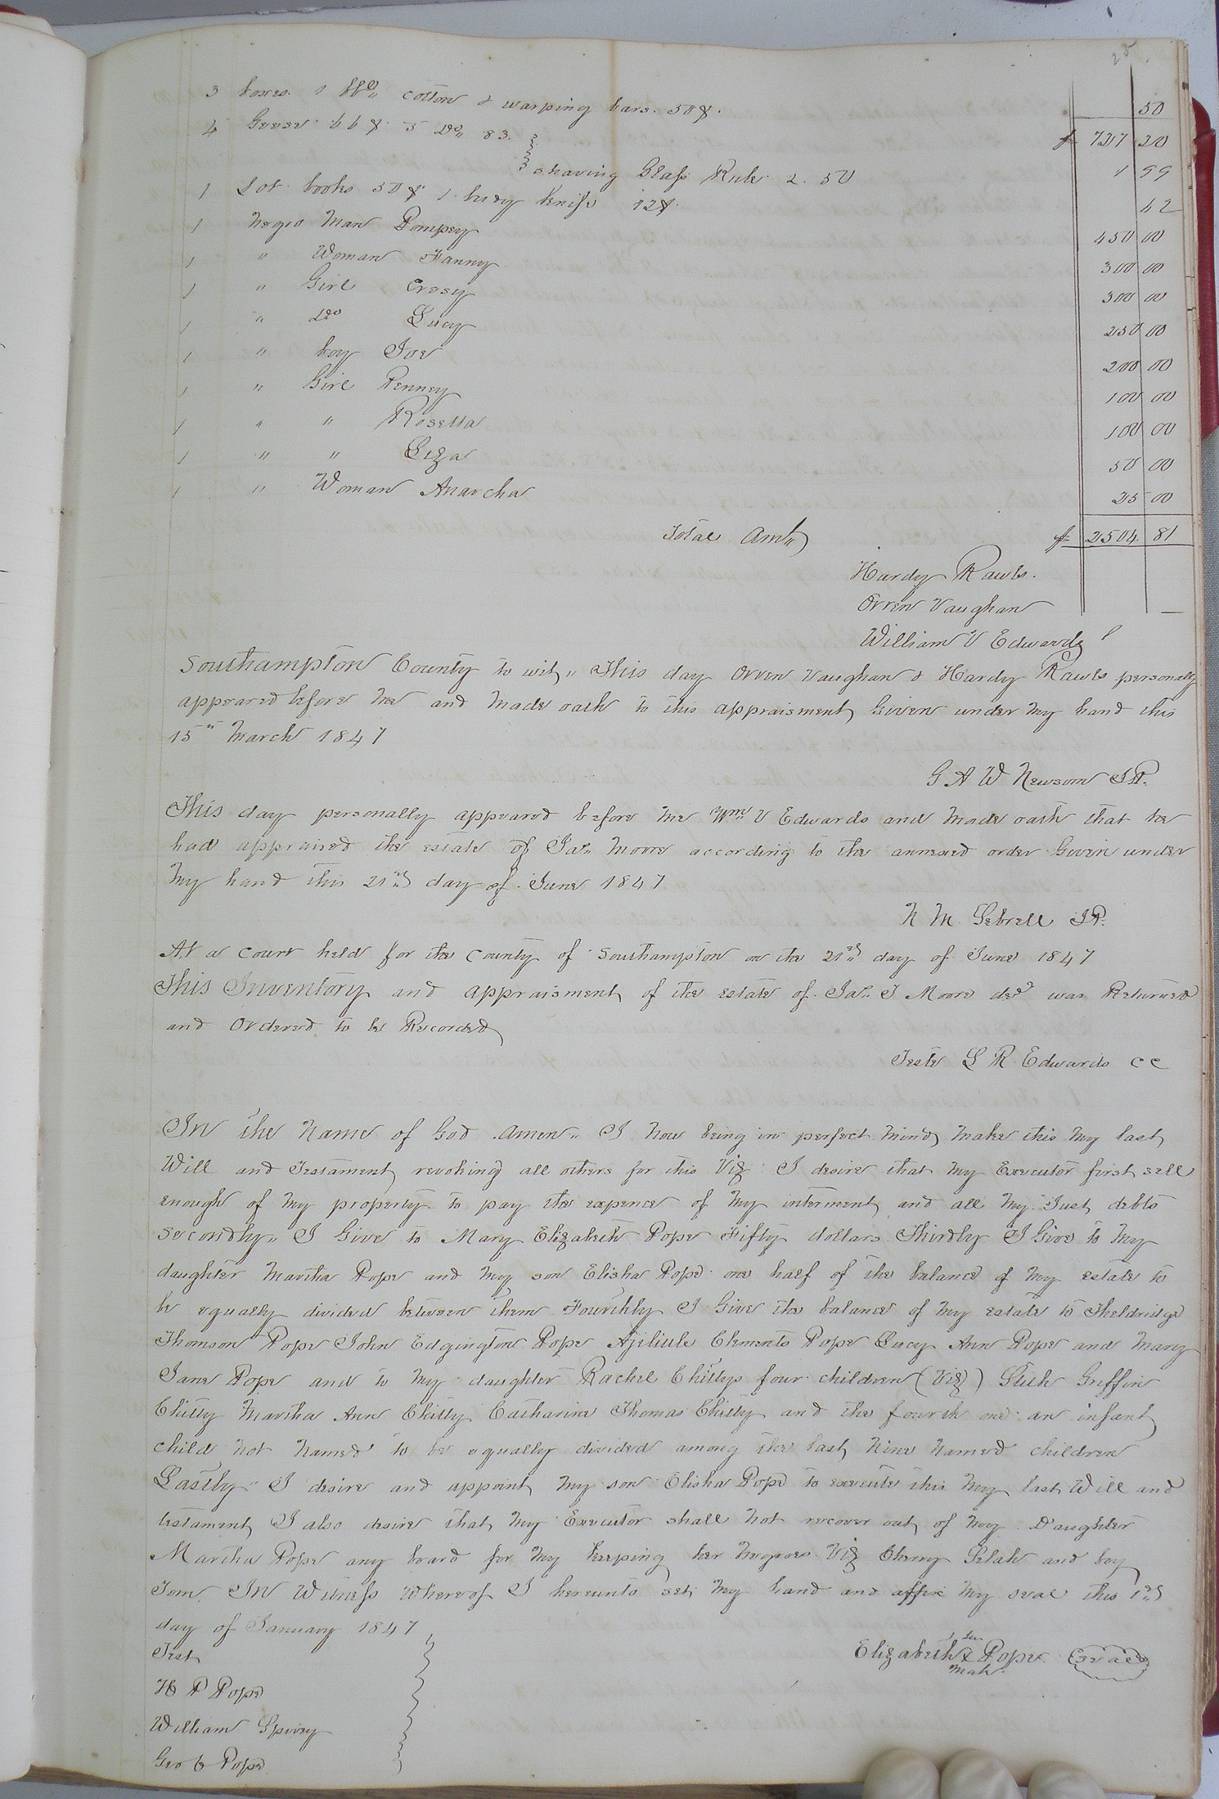 25
3 boxes 1 bbl cotton & warping bars 50¢ 50
4 Geese 66¢ 5 Do 83 $ 727 20
shaving Glass Rule 2.50 1 99
1 Lot books 50¢ 1 knife 12¢ 62
1 Negro Man Pompey 450 00
1 " Woman Fanny 300 00
1 " Girl Cresy 300 00
1 " Do Lucy 250 00
1 " boy Joe 200 00
1 " Girl Penney 100 00
1 " " Rosetta 100 00
1 " " Liza 50 00
1 " Woman Anarcha 25 00
Total Amt $ 2504 81
Hardy Rawls.
Orren Vaughan
William V Edwards
Southampton County to wit, This day Orren Vaughan & Hardy Rawls personally
appeared before me and made oath to this appraisment Given under my hand this
15th March 1847
G A W Newsom JP.
This day personally appeared before me Wm V Edwards and made oath that he
had appraised the estate of Jas. Moore according to the annexed order Given under
my hand this 21st day of June 1847
N M Sebrell JP.
At a court held for the county of Southampton on the 21st day of June 1847
This Inventory and appraisment of the estate of Jas. J Moore decd was Returned
and Ordered to be Recorded
Teste L R Edwards CC
In the name of God Amen. I now being in perfect mind make this my last
Will and Testament revoking all others for this Viz I desire that my Executor first sell
enough of my property to pay the expence of my interment and all my Just debts
secondly. I Give to Mary Elizabeth Pope Fifty dollars Thirdly I Give to my
daughter Martha Pope and my son Elisha Pope one half of the balance of my estate to
be equally divided between them Fourthly I Give the balance of my estate to Theldridge
Thomson Pope John Edgington Pope Clements Pope Lucy Ann Pope and Mary
Jane Pope and to my daughter Rachel Chittys four children (Viz) Griffin
Chitty Martha Ann Chitty Catharine Thomas Chitty and the fourth one an infant
child not named to be equally divided among the last nine named children
Lastly I desire and appoint my son Elisha Pope to execute this my last Will and
testament I also desire that my Executor shall not recover out of my Daughter
Martha Pope any board for my keeping her negroes Viz Cherry Selah and boy
Tom In Witness whereof I hereunto set my hand and affix my seal this 1st
day of January 1847
Test
her
Elizabeth X Pope Seal
mark
H P Pope
William Spivey
Geo Pope